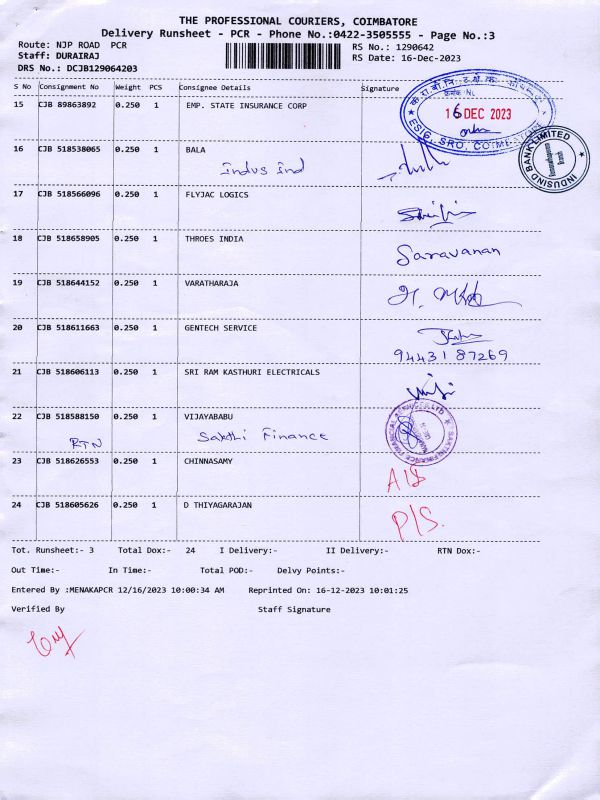 THE PROFESSIONAL COURIERS, COIMBATORE
Delivery Runsheet - PCR - Phone No.:0422-3505555 - Page No.:3
Route: NJP ROAD PCR
RS No.: 1290642
Staff: DURAIRAJ
RS Date: 16-Dec-2023
DRS No.: DCJB129064203
S No Consignment No Weight PCS Consignee Details Signature
15 CJB 89863892 0.250 1 EMP. STATE INSURANCE CORP
16 DEC 2023
16 CJB 518538065 0.250 1 BALA
Indus Ind
INDUSIND BANK LIMITED
17 CJB 518566096 0.250 1 FLYJAC LOGICS
18 CJB 518658905 0.250 1 THROES INDIA
Saravanan
19 CJB 518644152 0.250 1 VARATHARAJA
20 CJB 518611663 0.250 1 GENTECH SERVICE
94431 87269
21 CJB 518606113 0.250 1 SRI RAM KASTHURI ELECTRICALS
22 CJB 518588150 0.250 1 VIJAYABABU
RTN Sakthi Finance
23 CJB 518626553 0.250 1 CHINNASAMY
A/S
24 CJB 518605626 0.250 1 D THIYAGARAJAN
P/S.
Tot. Runsheet:- 3 Total Dox:- 24 I Delivery:- II Delivery:- RTN Dox:-
Out Time:- In Time:- Total POD:- Delvy Points:-
Entered By :MENAKAPCR 12/16/2023 10:00:34 AM Reprinted On: 16-12-2023 10:01:25
Verified By Staff Signature